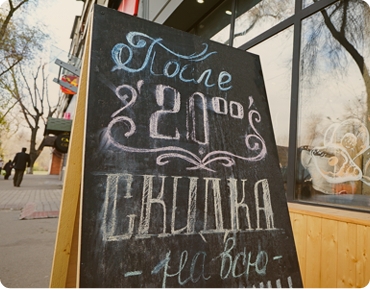 После
20⁰⁰
СКИДКА
- на всю -